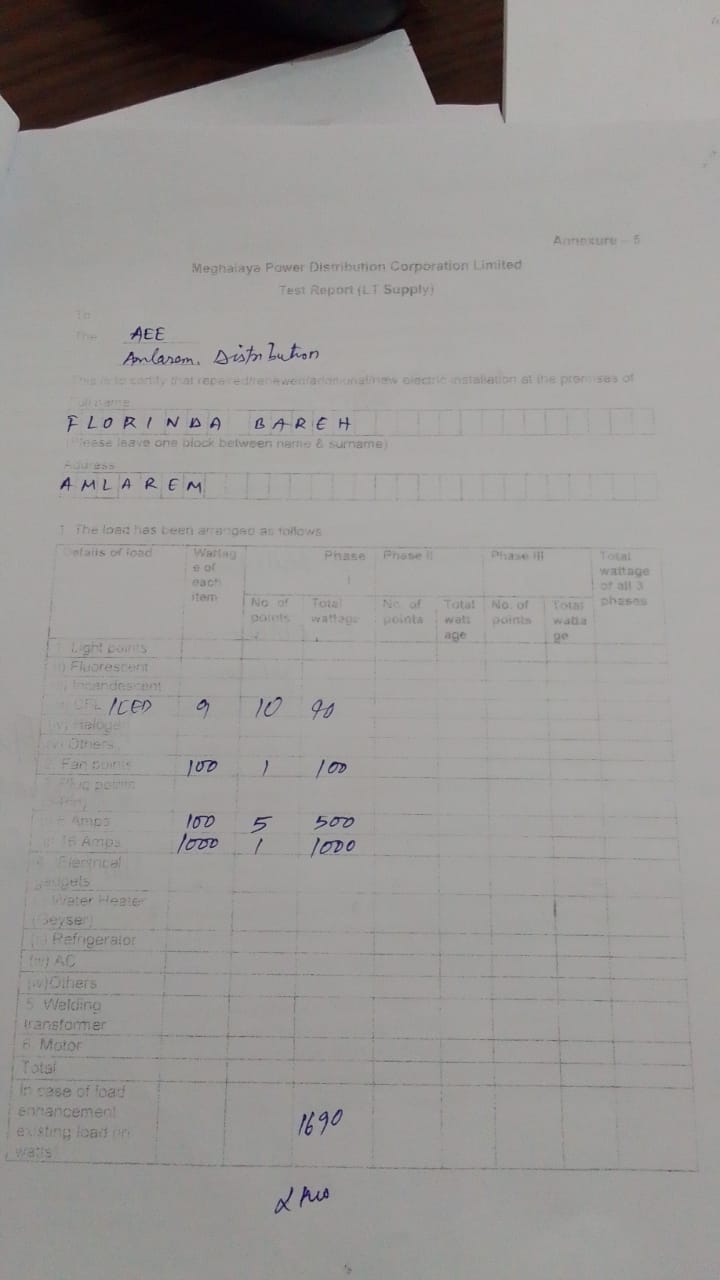 Annexure - 5
Meghalaya Power Distribution Corporation Limited
Test Report (LT Supply)
To
The AEE
Amlarem. Distribution
This is to certify that repaired/renewed/additional/new electric installation at the premises of
Full name
FLORINDA BAREH
(Please leave one block between name & surname)
Address
AMLAREM
1. The load has been arranged as follows
Details of load Wattag e of each item Phase I Phase II Phase III Total wattage of all 3 phases
No. of points Total wattage No. of points Total watt age No. of points Total watta ge
1. Light points
i) Fluorescent
Incandescent
CFL /LED 9 10 90
Halogen
Others
2. Fan points 100 1 100
Plug points
Amps 100 5 500
Amps 1000 1 1000
4. Electrical gadgets
Water Heater (Geyser)
Refrigerator
(iii) AC
(iv) Others
5. Welding transformer
6. Motor
Total
In case of load enhancement existing load in watts 1690